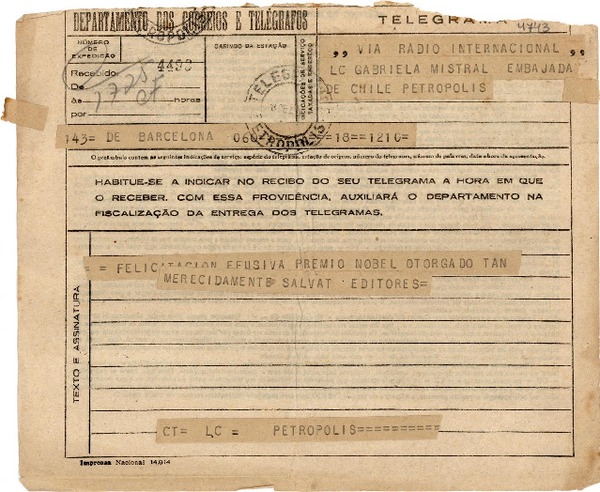 DEPARTAMENTO DOS CORREIOS E TELÉGRAFOS
TELEGRAMA
4743
NÚMERO DE EXPEDIÇÃO
4493
CARIMBO DA ESTAÇÃO
INDICAÇÕES DE SERVIÇO TAXADAS E ENDEREÇO
,, VIA RADIO INTERNACIONAL ,,
LC GABRIELA MISTRAL EMBAJADA
DE CHILE PETROPOLIS
Recebido:
De
às horas
por
143= DE BARCELONA 060 =18==1210=
O preâmbulo contém as seguintes indicações de serviço: espécie do telegrama, estação de origem, número do telegrama, número de palavras, data e hora da apresentação.
HABITUE-SE A INDICAR NO RECIBO DO SEU TELEGRAMA A HORA EM QUE
O RECEBER. COM ESSA PROVIDÊNCIA, AUXILIARÁ O DEPARTAMENTO NA
FISCALIZAÇÃO DA ENTREGA DOS TELEGRAMAS.
TEXTO E ASSINATURA
= = FELICITACION EFUSIVA PREMIO NOBEL OTORGADO TAN
MERECIDAMENTE SALVAT EDITORES=
CT= LC = PETROPOLIS==========
Imprensa Nacional 14.014